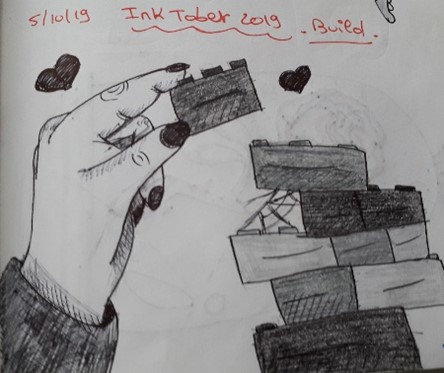 5/10/19 InkTober 2019 - Build.